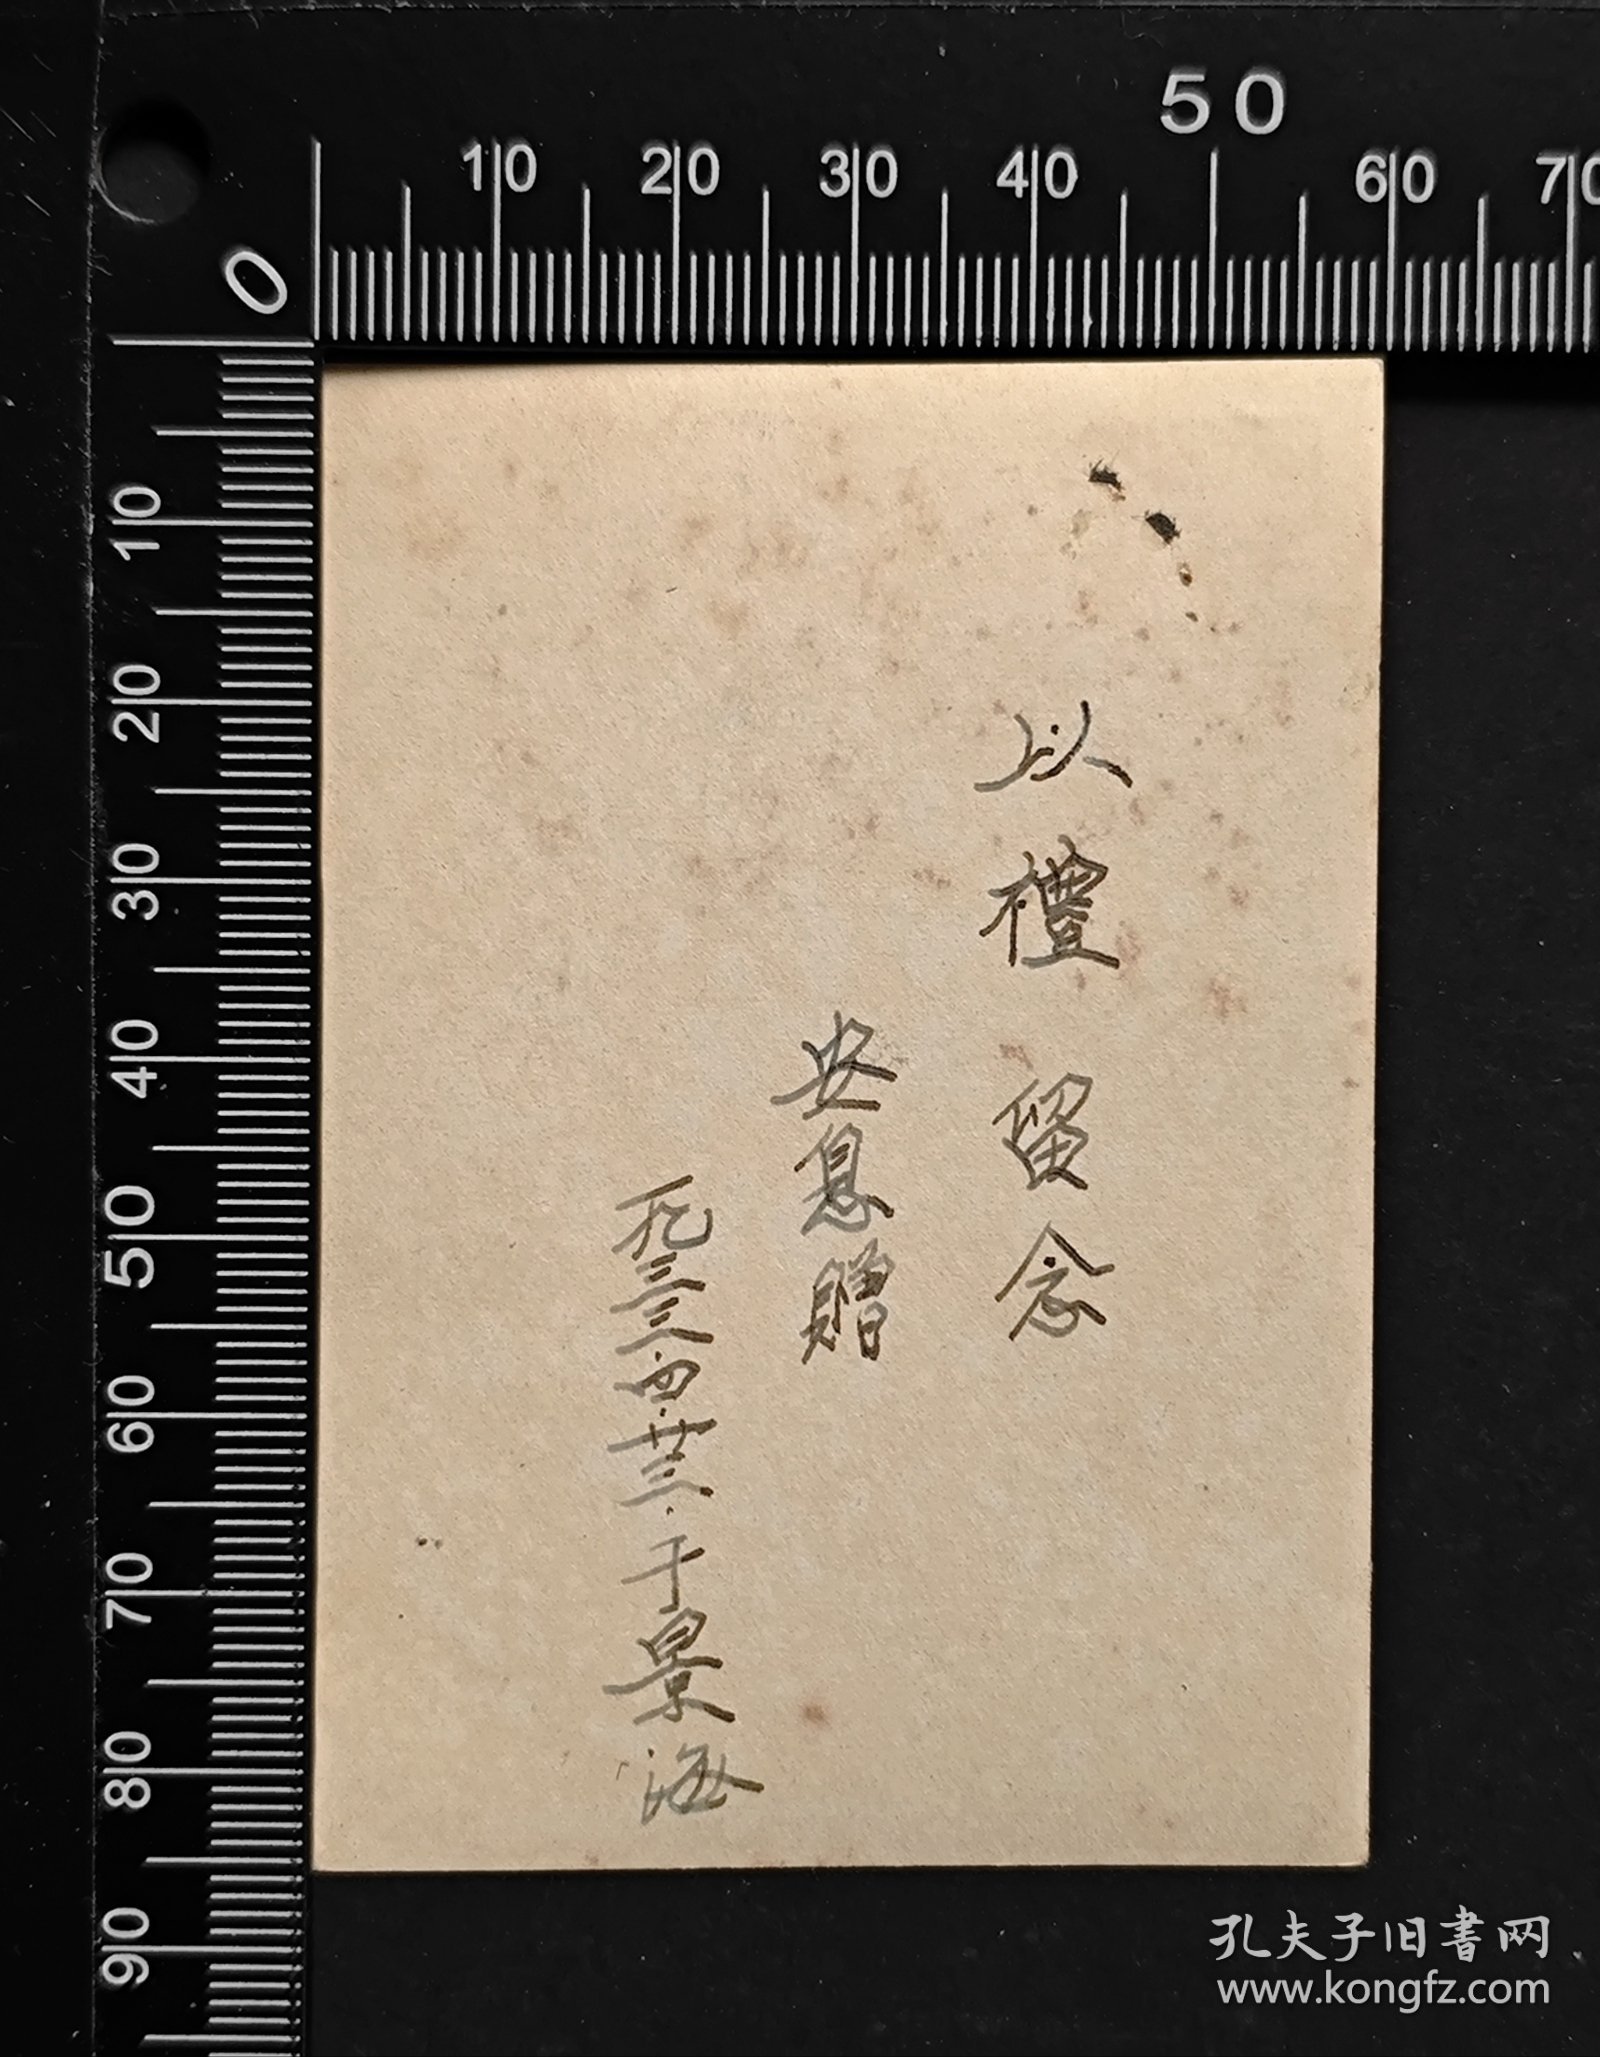 50
10 20 30 40 60 70
0
10
20
30
40
50
60
70
80
90
以禮 留念
安息贈
一九三三·四·廿三·于景海
孔夫子旧書网
www.kongfz.com